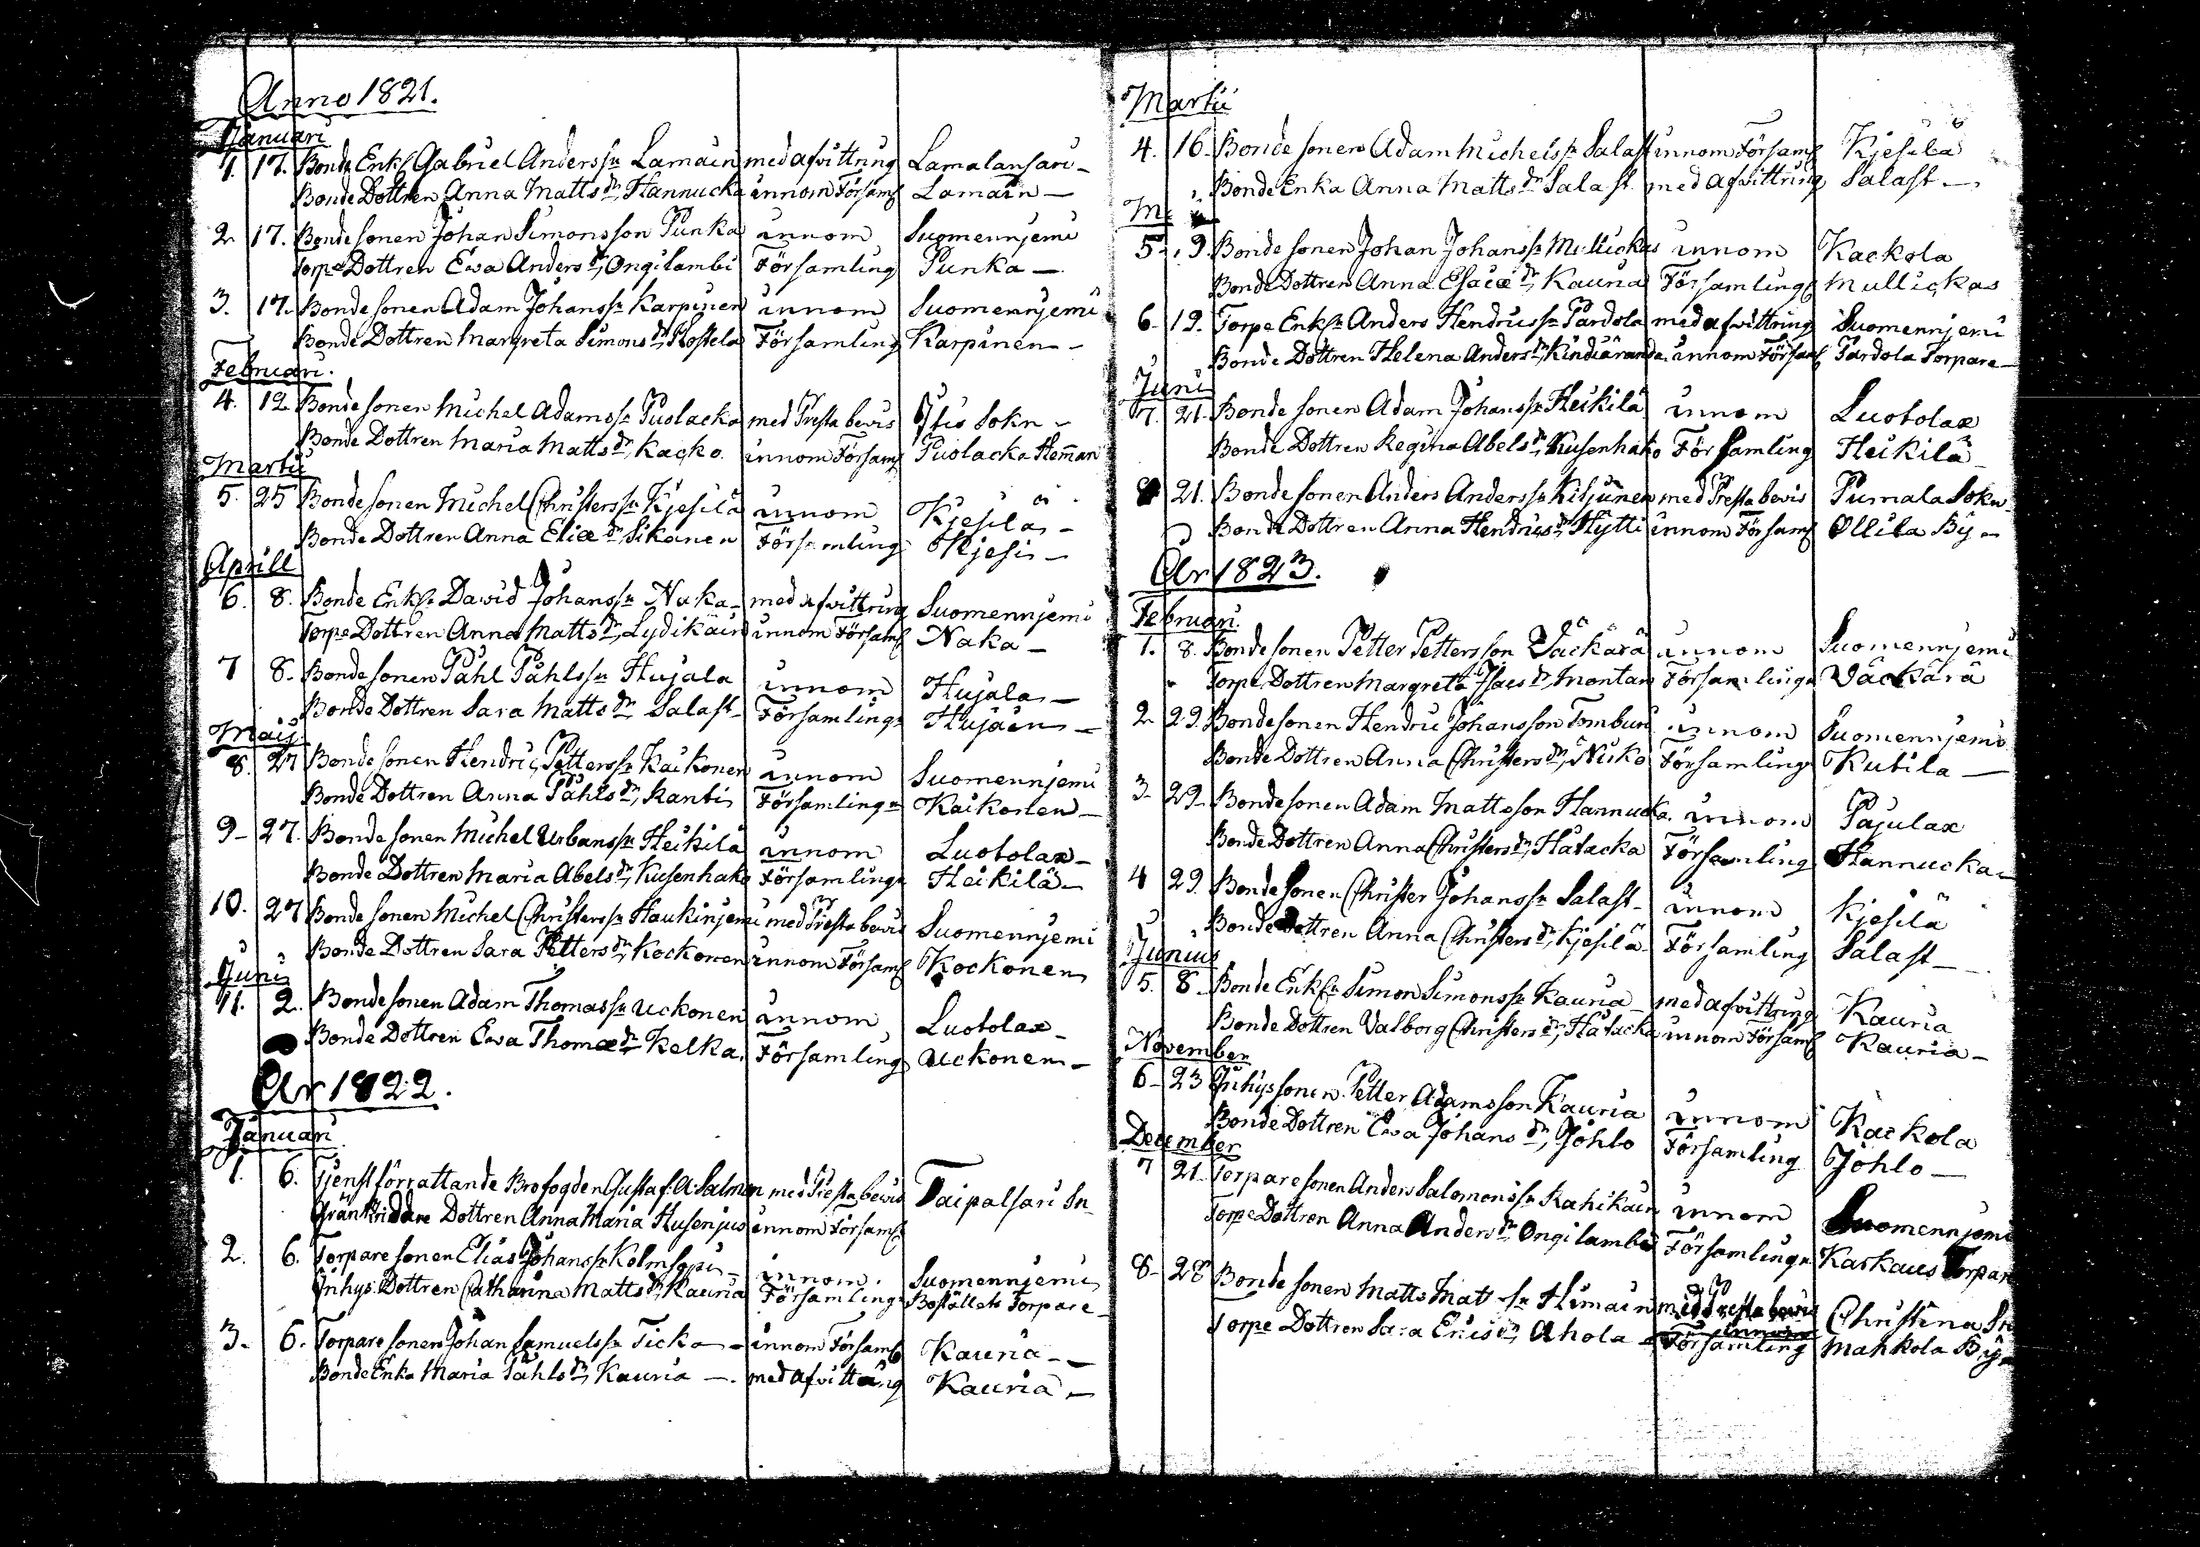 Anno 1821.
Januari
1. 17. Bonde Enkl Gabriel Anderssn Lamain med afvittring Lamalansari -
Bonde Dottren Anna Matts dr, Hannucka innom Församl Lamain -
2. 17. Bonde sonen Johan Simonsson Punka innom Suomennjemi
Torpe Dottren Ewa Anders dr, Ongilambi Församling Punka -
3. 17. Bonde sonen Adam Johanssn Karpinen innom Suomennjemi
Bonde Dottren Margreta Simons dr, Hostela Församling Karpinen -
Februari.
4. 12 Bonde sonen Michel Adamssn Puolacka med Presta bevis Jtis Sokn -
Bonde Dottren Maria Matts dr, Kacko. innom Församl Puolacka Hem̄an
Martii
5. 25 Bonde sonen Michel Christerssn Kjesilä innom Kjesilä -
Bonde Dottren Anna Eliæ dr, Sikanen Församling Kjesi -
Aprill
6. 8. Bonde Enkln David Johanssn Naka - med afvittring Suomennjemi
Torpe Dottren Anna Matts dr, Lydikäin innom Församl Naka -
7 8. Bonde sonen Påhl Påhlssn Hujala innom Hujala -
Bonde Dottren Sara Matts dr Salast - Församling Hujäin -
Maij
8. 27 Bonde sonen Hendric Petterssn Kaikonen innom Suomennjemi
Bonde Dottren Anna Påhls dr, Kanti Församling Kaikonen -
9 - 27. Bonde sonen Michel Urbanssn Heikilä innom Luotolax -
Bonde Dottren Maria Abels dr, Kusenhako Församling Heikilä -
10. 27 Bonde sonen Michel Christerssn Haukinjemi med Presta bevis Suomennjemi
Bonde Dottren Sara Petters dr, Kockonen innom Församl Kockonen
Juni
11. 2. Bonde sonen Adam Thomassn Uckonen innom Luotolax
Bonde Dottren Ewa Thomæ dr Kelka. Församling Uckonen -
År 1822.
Januari
1. 6. Tjenstförrattande Brofogden Gustaf A: Salmen med Presta bevis Taipalsari Sn
Dottren Anna Maria Husenius innom Församl
2. 6. Torpare sonen Elias Johanssn Kolmsopi - innom Suomennjemi
Inhys Dottren Catharina Matts dr, Kauria Församling Boställets Torpare -
3. 6. Torpare sonen Johan Samuelssn Ticka - innom Församl Kauria -
Bonde Enka Maria Påhls dr, Kauria - med afvittring Kauria -
Martii
4. 16. Bonde sonen Adam Michelssn Salast innom Församl Kjesilä
Bonde Enka Anna Matts dr Salast med afvittring Salast -
5. 9. Bonde sonen Johan Johanssn Mullickas innom Kackola
Bonde Dottren Anna Esaiæ dr, Kauria Församling Mullickas
6. 19. Torpe Enkln Anders Hendricssn Pardola med afvittring Suomennjemi
Bonde Dottren Helena Anders dr, innom Församl Pardola Torpare -
Juni
7. 21. Bonde sonen Adam Johanssn Heikilä innom Luotolax
Bonde Dottren Regina Abels dr, Kusenhako Församling Heikilä -
8 21. Bonde sonen Anders Anderssn Kiljunen med Presta bevis Pumala Sokn
Bonde Dottren Anna Hendrics dr, Hytti innom Församl Ollila By -
År 1823.
Februari.
1. 8. Bonde sonen Petter Pettersson Väckärä innom Suomennjemi
Torpe Dottren Margreta Isacs dr, Montan Församling Väckärä
2. 29. Bonde sonen Hendric Johansson Tomburi innom Suomennjemi
Bonde Dottren Anna Christers dr, Nisko Församling Kutila -
3 - 29 - Bonde sonen Adam Mattsson Hannucka. innom Pajulax
Bonde Dottren Anna Christers dr, Hatacka Församling Hannucka -
4 29. Bonde sonen Christer Johanssn Salast - innom Kjesilä
Bonde Dottren Anna Christers dr, Kjesilä - Församling Salast -
Junius
5. 8 - Bonde Enkln Simon Simonssn Kauria - med afvittring Kauria
Bonde Dottren Valborg Christers dr, Hatacka innom Församl Kauria -
November
6 - 23 Inhys sonen Petter Adamsson Kauria innom Kackola
Bonde Dottren Ewa Johans dr, Jöhlo Församling Jöhlo -
December
7 21 - Torpare sonen Anders Salomonssn Kahikain innom Suomennjemi
Torpe Dottren Anna Anders dr, Ongilambi Församling Kaskaus Torpar
8 - 28 Bonde sonen Matts Mattssn Himain med Presta bevis Christina Sn
Torpe Dottren Sara Erics dr, Ahola - innom Församling Mahkola By